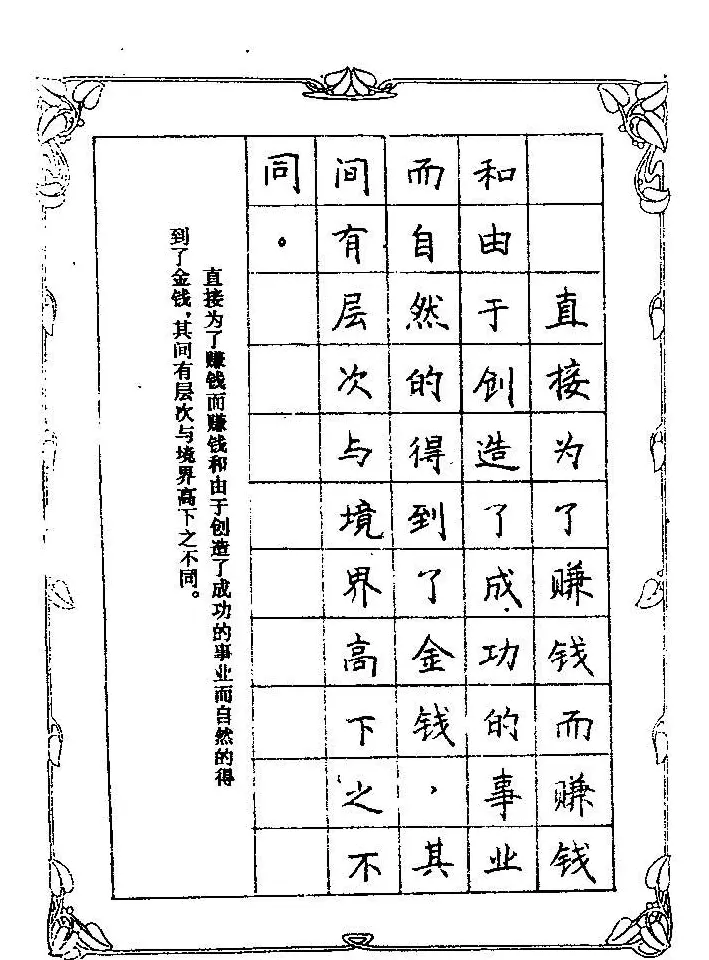 直接为了赚钱而赚钱
和由于创造了成功的事业
而自然的得到了金钱，其
间有层次与境界高下之不
同。
直接为了赚钱而赚钱和由于创造了成功的事业而自然的得
到了金钱，其间有层次与境界高下之不同。